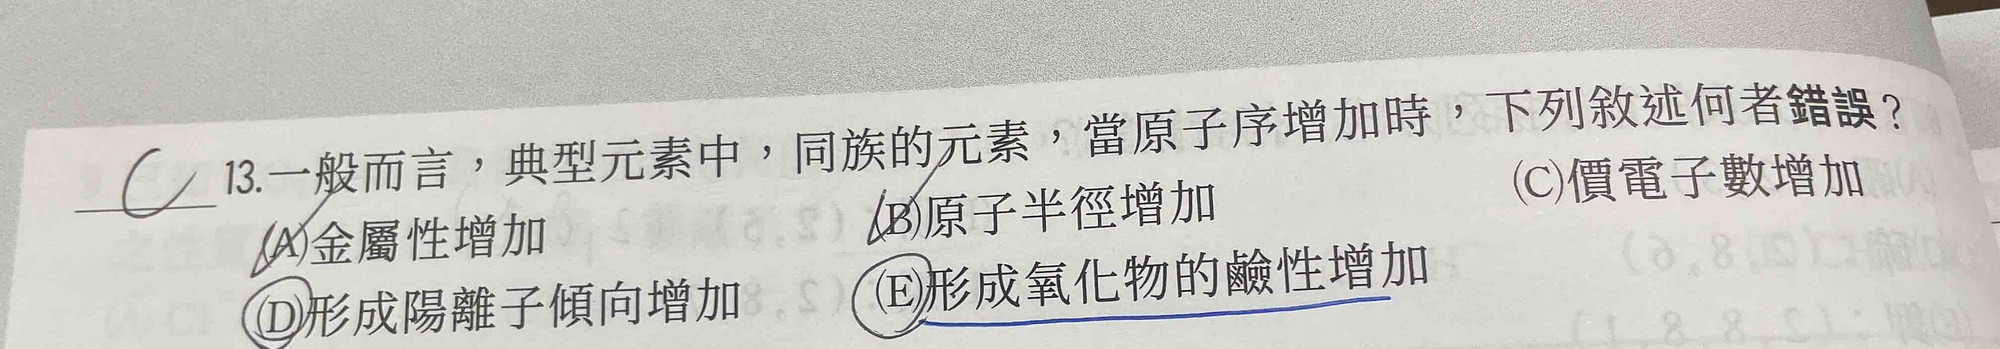 C 13.一般而言，典型元素中，同族的元素，當原子序增加時，下列敘述何者錯誤？
(A)金屬性增加 (B)原子半徑增加 (C)價電子數增加
(D)形成陽離子傾向增加 (E)形成氧化物的鹼性增加